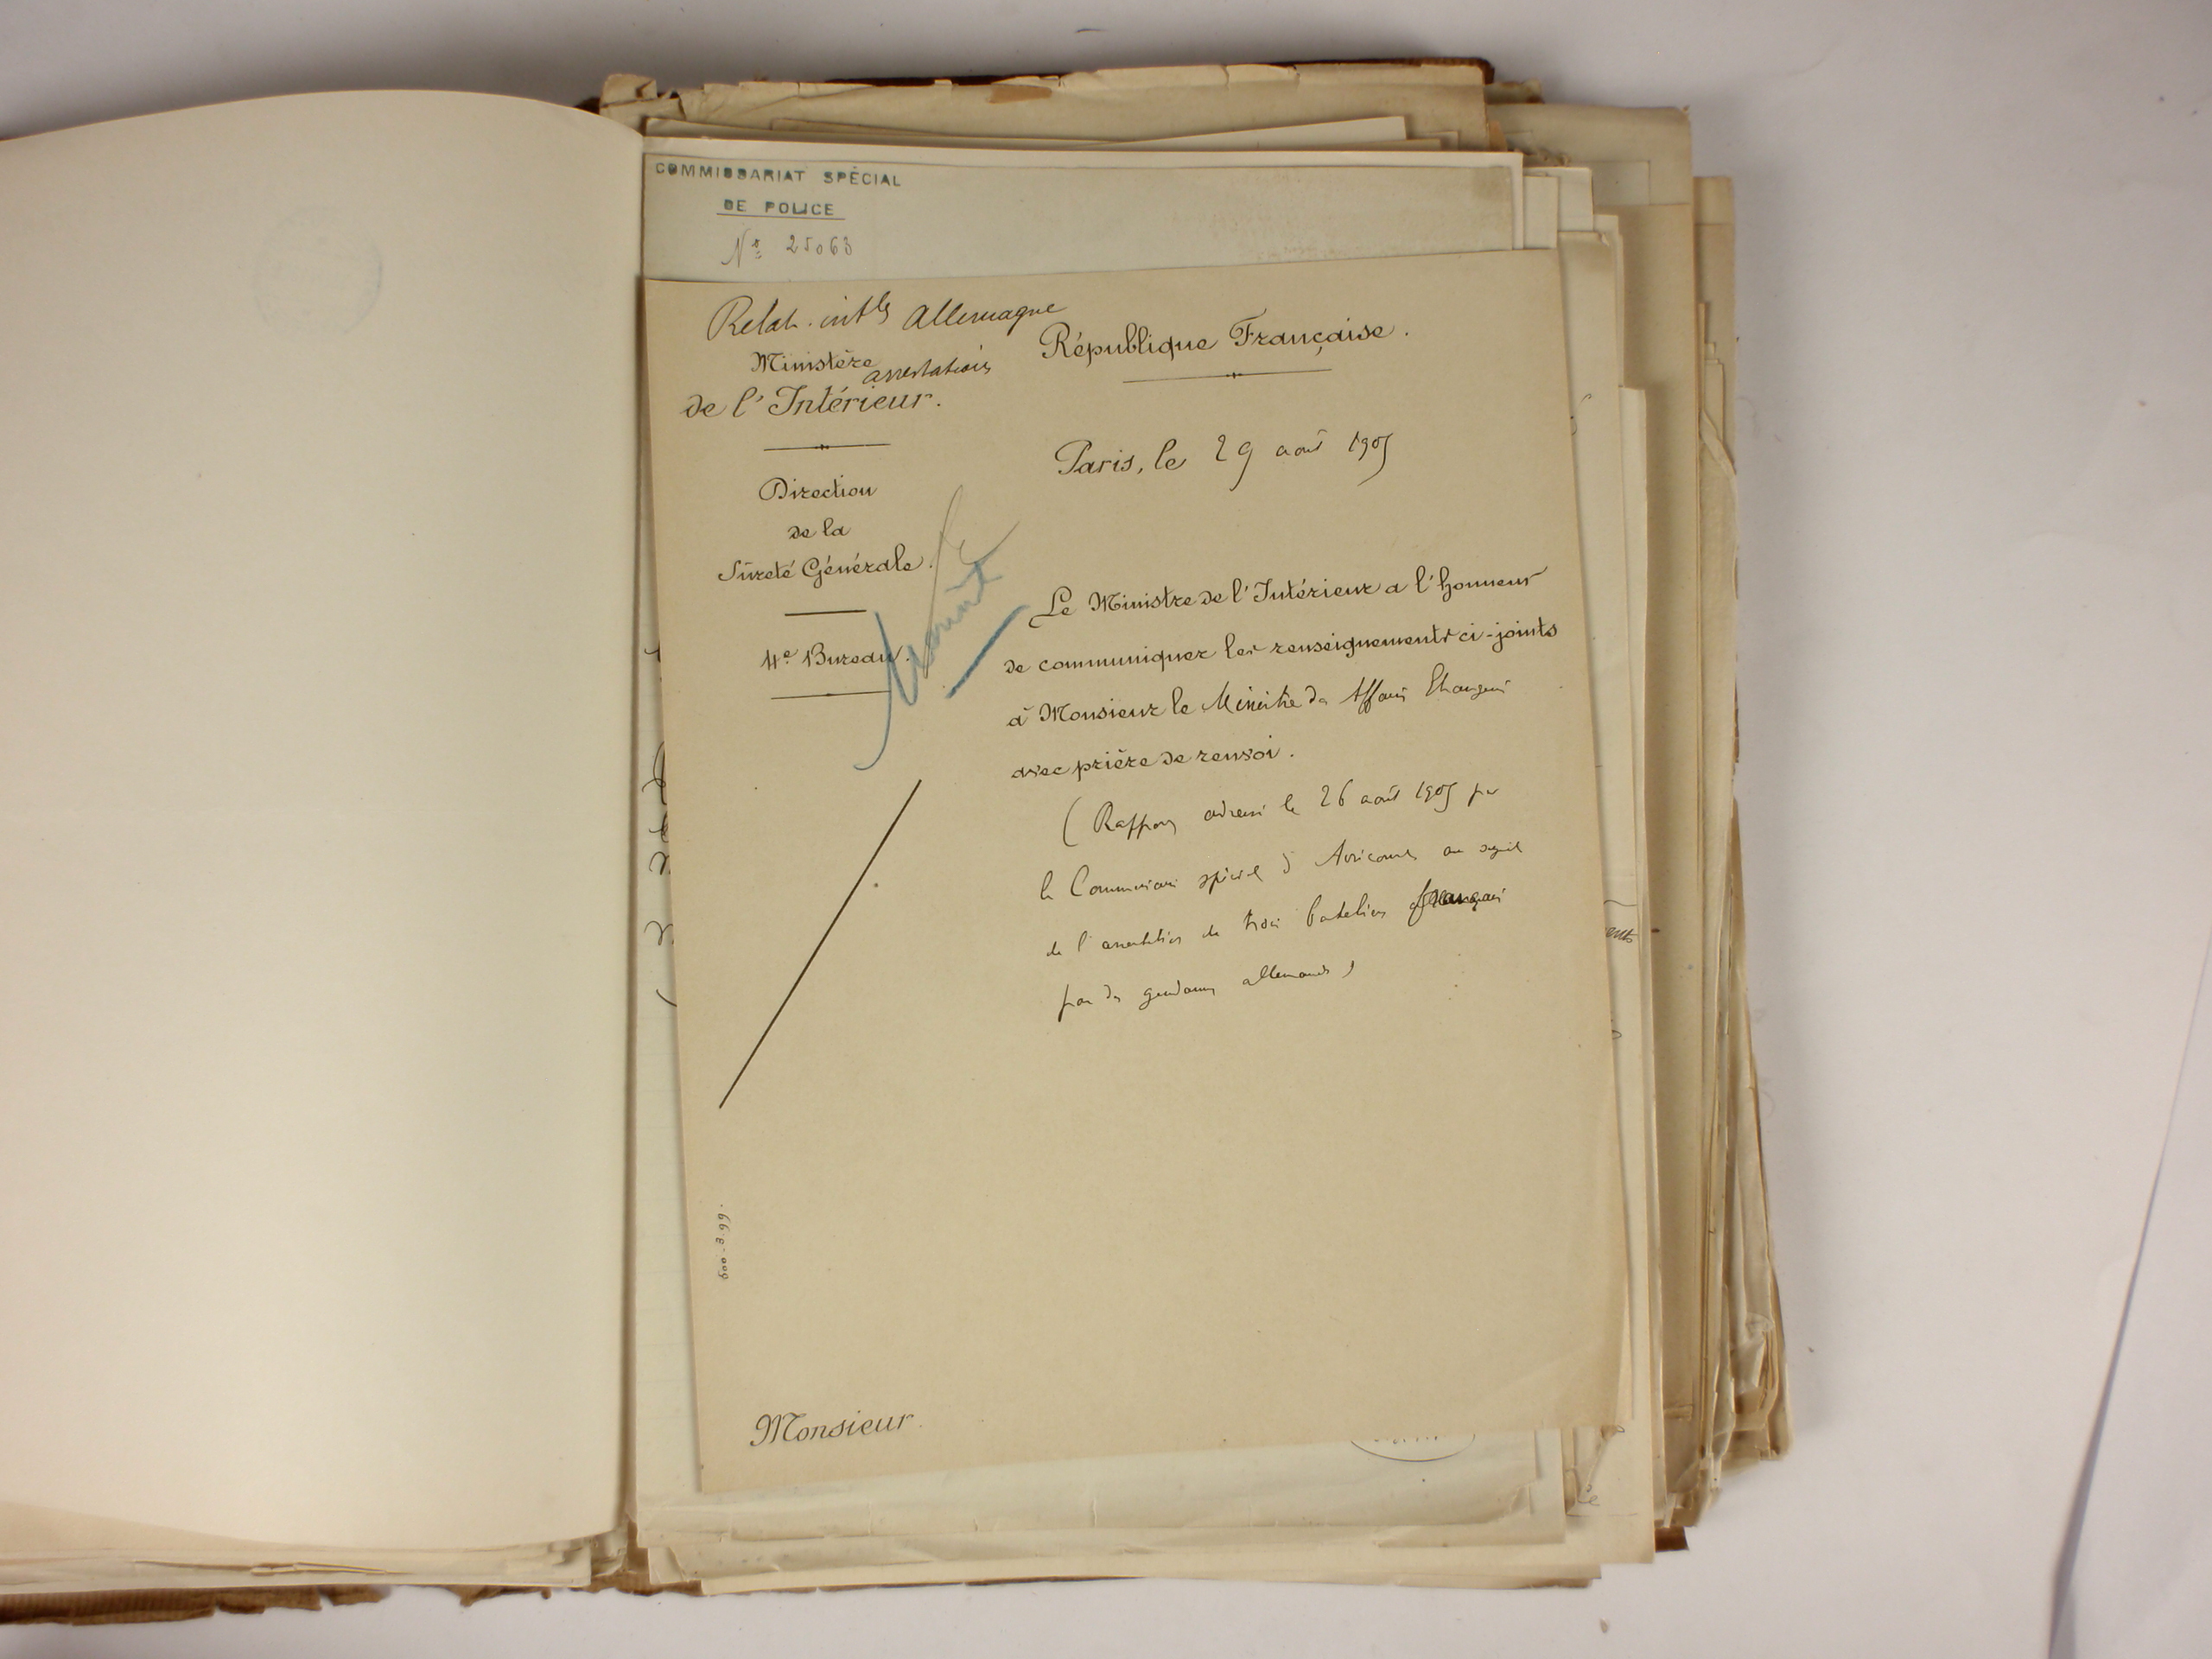 COMMISSARIAT SPÉCIAL
DE POLICE
Nº 25063
Relat. intles Allemagne
arrestations
Ministère
de l'Intérieur.
République Française.
Paris, le 29 août 1905
Direction
de la
Sûreté Générale.
4e Bureau.
Le Ministre de l'Intérieur a l'honneur
de communiquer les renseignements ci-joints
à Monsieur le Ministre des Affaires Etrangères
avec prière de renvoi.
(Rapport adressé le 26 août 1905 par
le Commissaire spécial d'Avricourt au sujet
de l'arrestation de trois bateliers français
par des gendarmes allemands)
600-3-99.
Monsieur